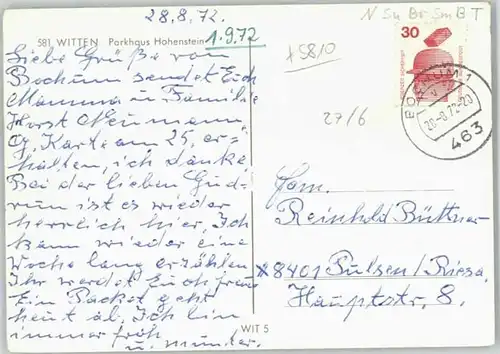 28.8.72.
581 WITTEN Parkhaus Hohenstein
1.9.72
Liebe Grüße von
Bochum sendet Euch
Mamma u Familie
Horst Neumann
Karte am 25. er-
halten, ich danke
Bei der lieben Gud-
run ist es wieder
herrlich hier, Ich
kann wieder eine
Woche lang erzählen.
Ihr werdet Euch freuen
Ein Packet geht
heut ab. Ich bin
immer froh
u. munter.
N Su Br Sm B T
15810
27/6
30
BOCHUM 1
28.-8.72-20
463
Fam.
Reinhold Büttner
8401 Pulsen/Riesa
Hauptstr, 8.
WIT 5